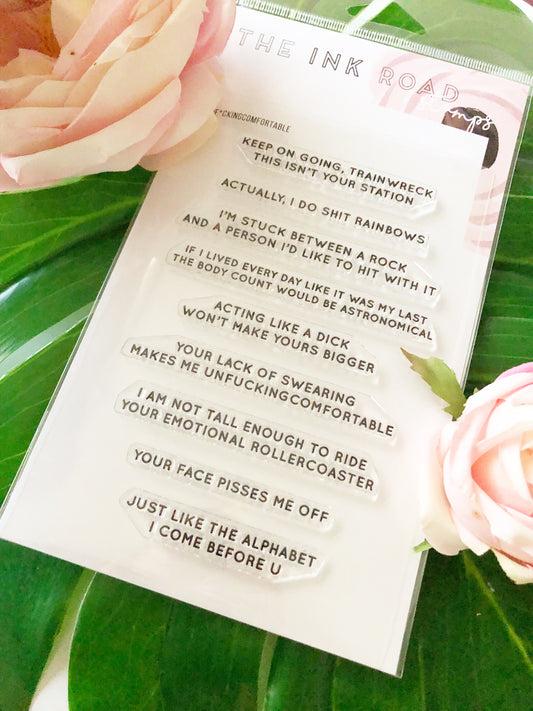 THE INK ROAD
stamps
F*CKINGCOMFORTABLE
KEEP ON GOING, TRAINWRECK
THIS ISN'T YOUR STATION
ACTUALLY, I DO SHIT RAINBOWS
I'M STUCK BETWEEN A ROCK
AND A PERSON I'D LIKE TO HIT WITH IT
IF I LIVED EVERY DAY LIKE IT WAS MY LAST
THE BODY COUNT WOULD BE ASTRONOMICAL
ACTING LIKE A DICK
WON'T MAKE YOURS BIGGER
YOUR LACK OF SWEARING
MAKES ME UNFUCKINGCOMFORTABLE
I AM NOT TALL ENOUGH TO RIDE
YOUR EMOTIONAL ROLLERCOASTER
YOUR FACE PISSES ME OFF
JUST LIKE THE ALPHABET
I COME BEFORE U